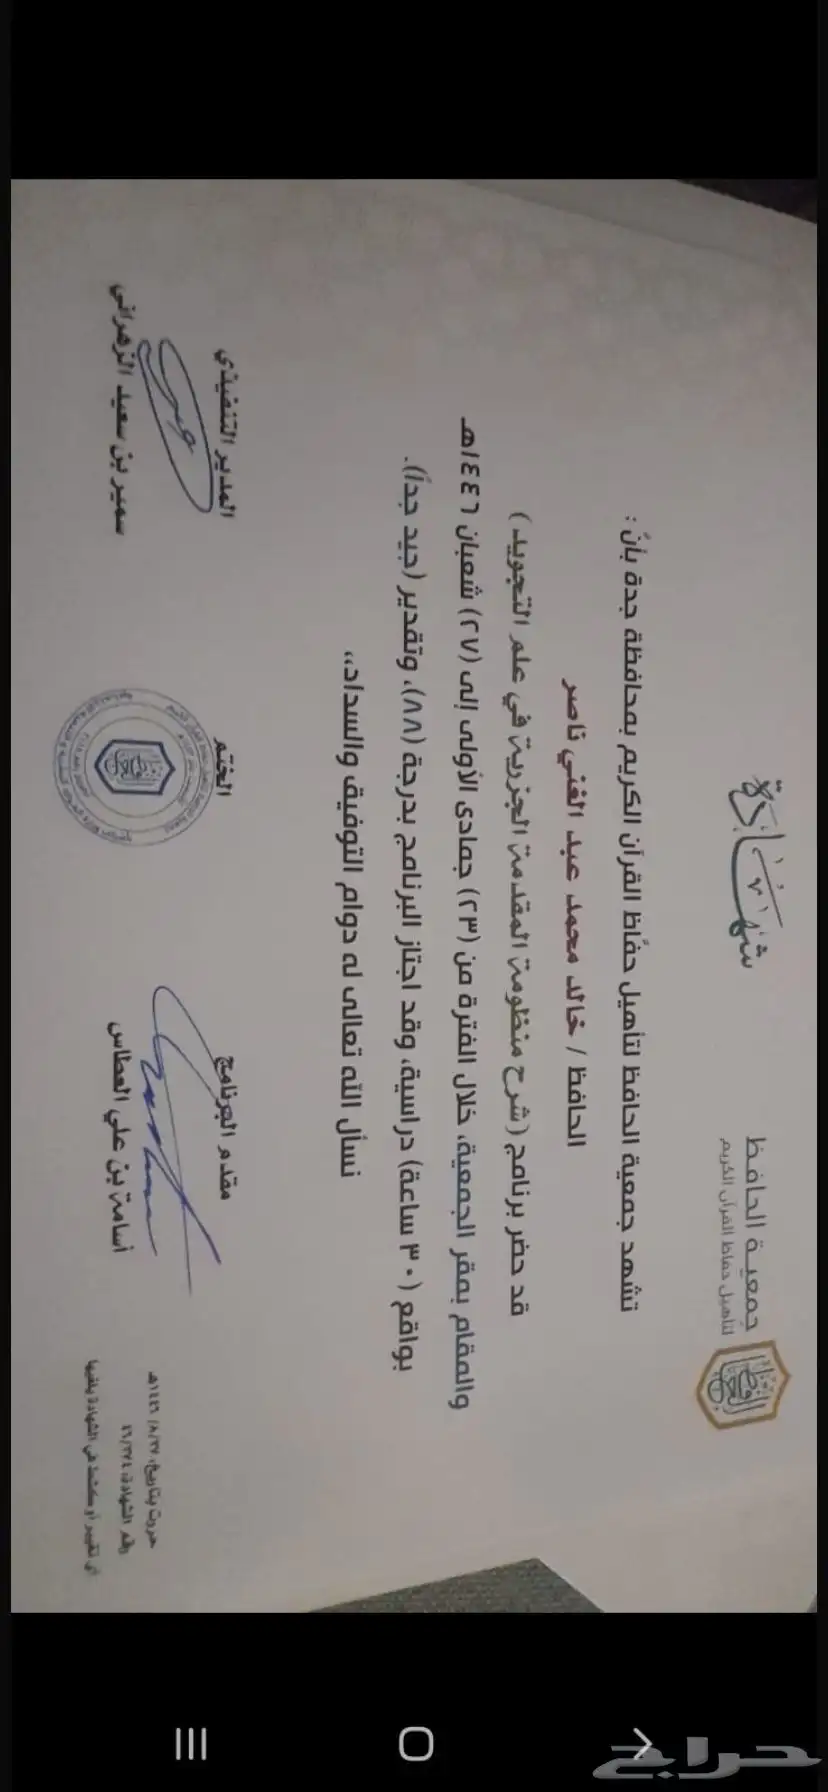 جمعية الحافظ
لتأهيل حفاظ القرآن الكريم
شهادة
تشهد جمعية الحافظ لتأهيل حفّاظ القرآن الكريم بمحافظة جدة بأن :
الحافظ / خالد محمد عبد الغني ناصر
قد حضر برنامج ( شرح منظومة المقدمة الجزرية في علم التجويد )
والمقام بمقر الجمعية، خلال الفترة من (٢٣) جمادى الأولى إلى (٢٧) شعبان ١٤٤٦هـ
بواقع (٣٠ ساعة) دراسية، وقد اجتاز البرنامج بدرجة (٨٨)، وتقدير (جيد جداً).
نسأل الله تعالى له دوام التوفيق والسداد،،
مقدم البرنامج
أسامة بن علي العطاس
الختم
المدير التنفيذي
سمير بن سعيد الزهراني
حررت بتاريخ: ١٤٤٦/٨/٢٧هـ
رقم الشهادة: ٤٦/٣٧٤
أي تغيير أو كشط في الشهادة يلغيها
حراج